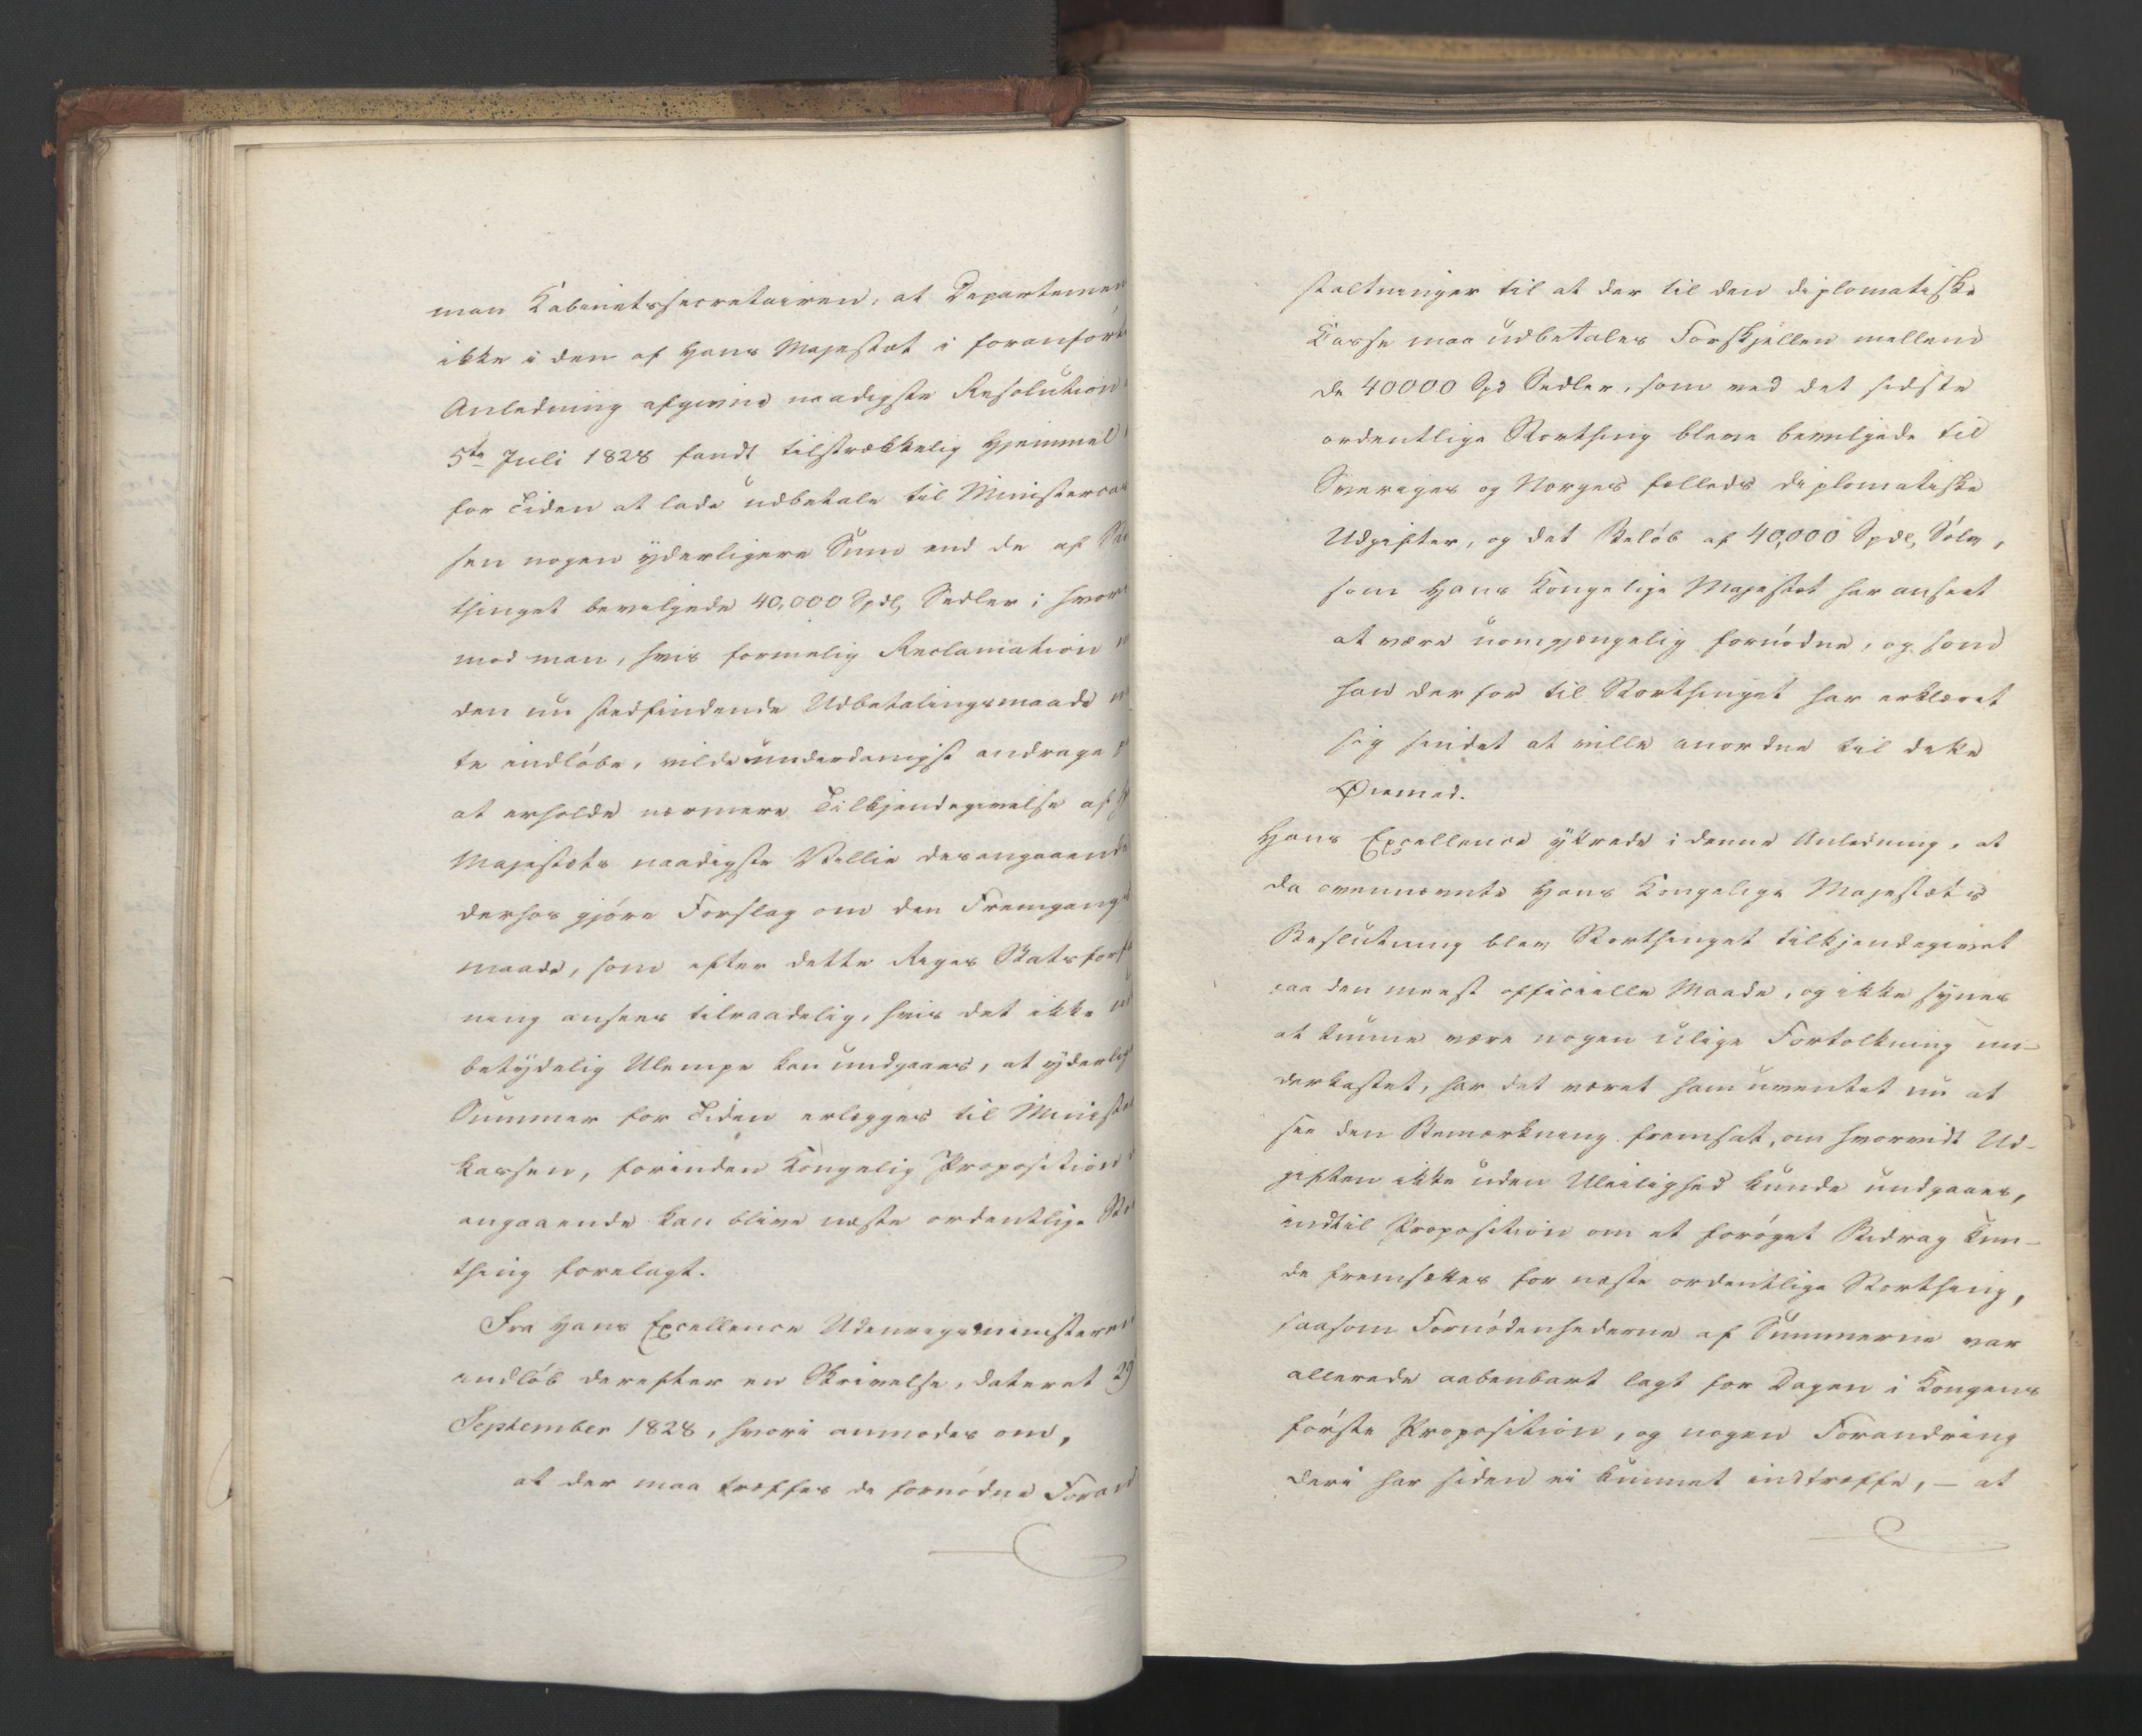 man Kabinetssecretairen, at Departemen
ikke i den af Hans Majestæt i foranfør
Anledning afgivne naadigste Resolution
5te Juli 1828 fandt tilstrækkelig Hjemmel
for Tiden at lade udbetale til Ministercas
sen nogen yderligere Sum end de af Sto
thinget bevilgede 40,000 Spdl, Sedler; hvor
mod man, hvis formelig Reclamation
den nu stedfindende Udbetalingsmaade
te indløbe, vilde underdanigst andrage
at erholde nærmere Tilkjendegivelse af H
Majestæts naadigste Villie desangaaende
derhos gjøre Forslag om den Fremgangs
maade, som efter dette Riges Statsforf
ning ansees tilraadelig, hvis det ikke
betydelig Ulempe kan undgaaes, at yderlig
Summer for Tiden erlægges til Minist
kassen, forinden Kongelig Proposition
angaaende kan blive næste ordentlige Sto
thing forelagt.
Fra Hans Excellence Udenrigsministeren
indløb derefter en Skrivelse, dateret 29
September 1828, hvori anmodes om,
at der maa træffes de fornødne Foran
staltninger til at der til den diplomatiske
Casse maa udbetales Forskjellen mellem
de 40000 Spd Sedler, som ved det sidste
ordentlige Storthing bleve bevilgede til
Sveriges og Norges fælleds diplomatiske
Udgifter, og det Beløb af 40,000 Spdl, Sølv,
som Hans Kongelige Majestæt har anseet
at være uomgjængelig fornødne, og som
han derfor til Storthinget har erklæret
sig sindet at ville anordne til dette
Øiemed.
Hans Excellence yttrede i denne Anledning, at
da ovennævnte Hans Kongelige Majestæts
Beslutning blev Storthinget tilkjendegivet
paa den meest officielle Maade, og ikke synes
at kunne være nogen ulige Fortolkning un-
derkastet, har det været ham uventet nu at
see den Bemærkning fremsat, om hvorvidt Ud-
giften ikke uden Uleilighed kunde undgaaes,
indtil Proposition om et forøget Bidrag kun-
de fremsættes for næste ordentlige Storthing,
saasom Fornødenhederne af Summerne var
allerede aabenbart lagt for Dagen i Kongens
første Proposition, og nogen Forandring
deri har siden ei kunnet indtræffe, – at